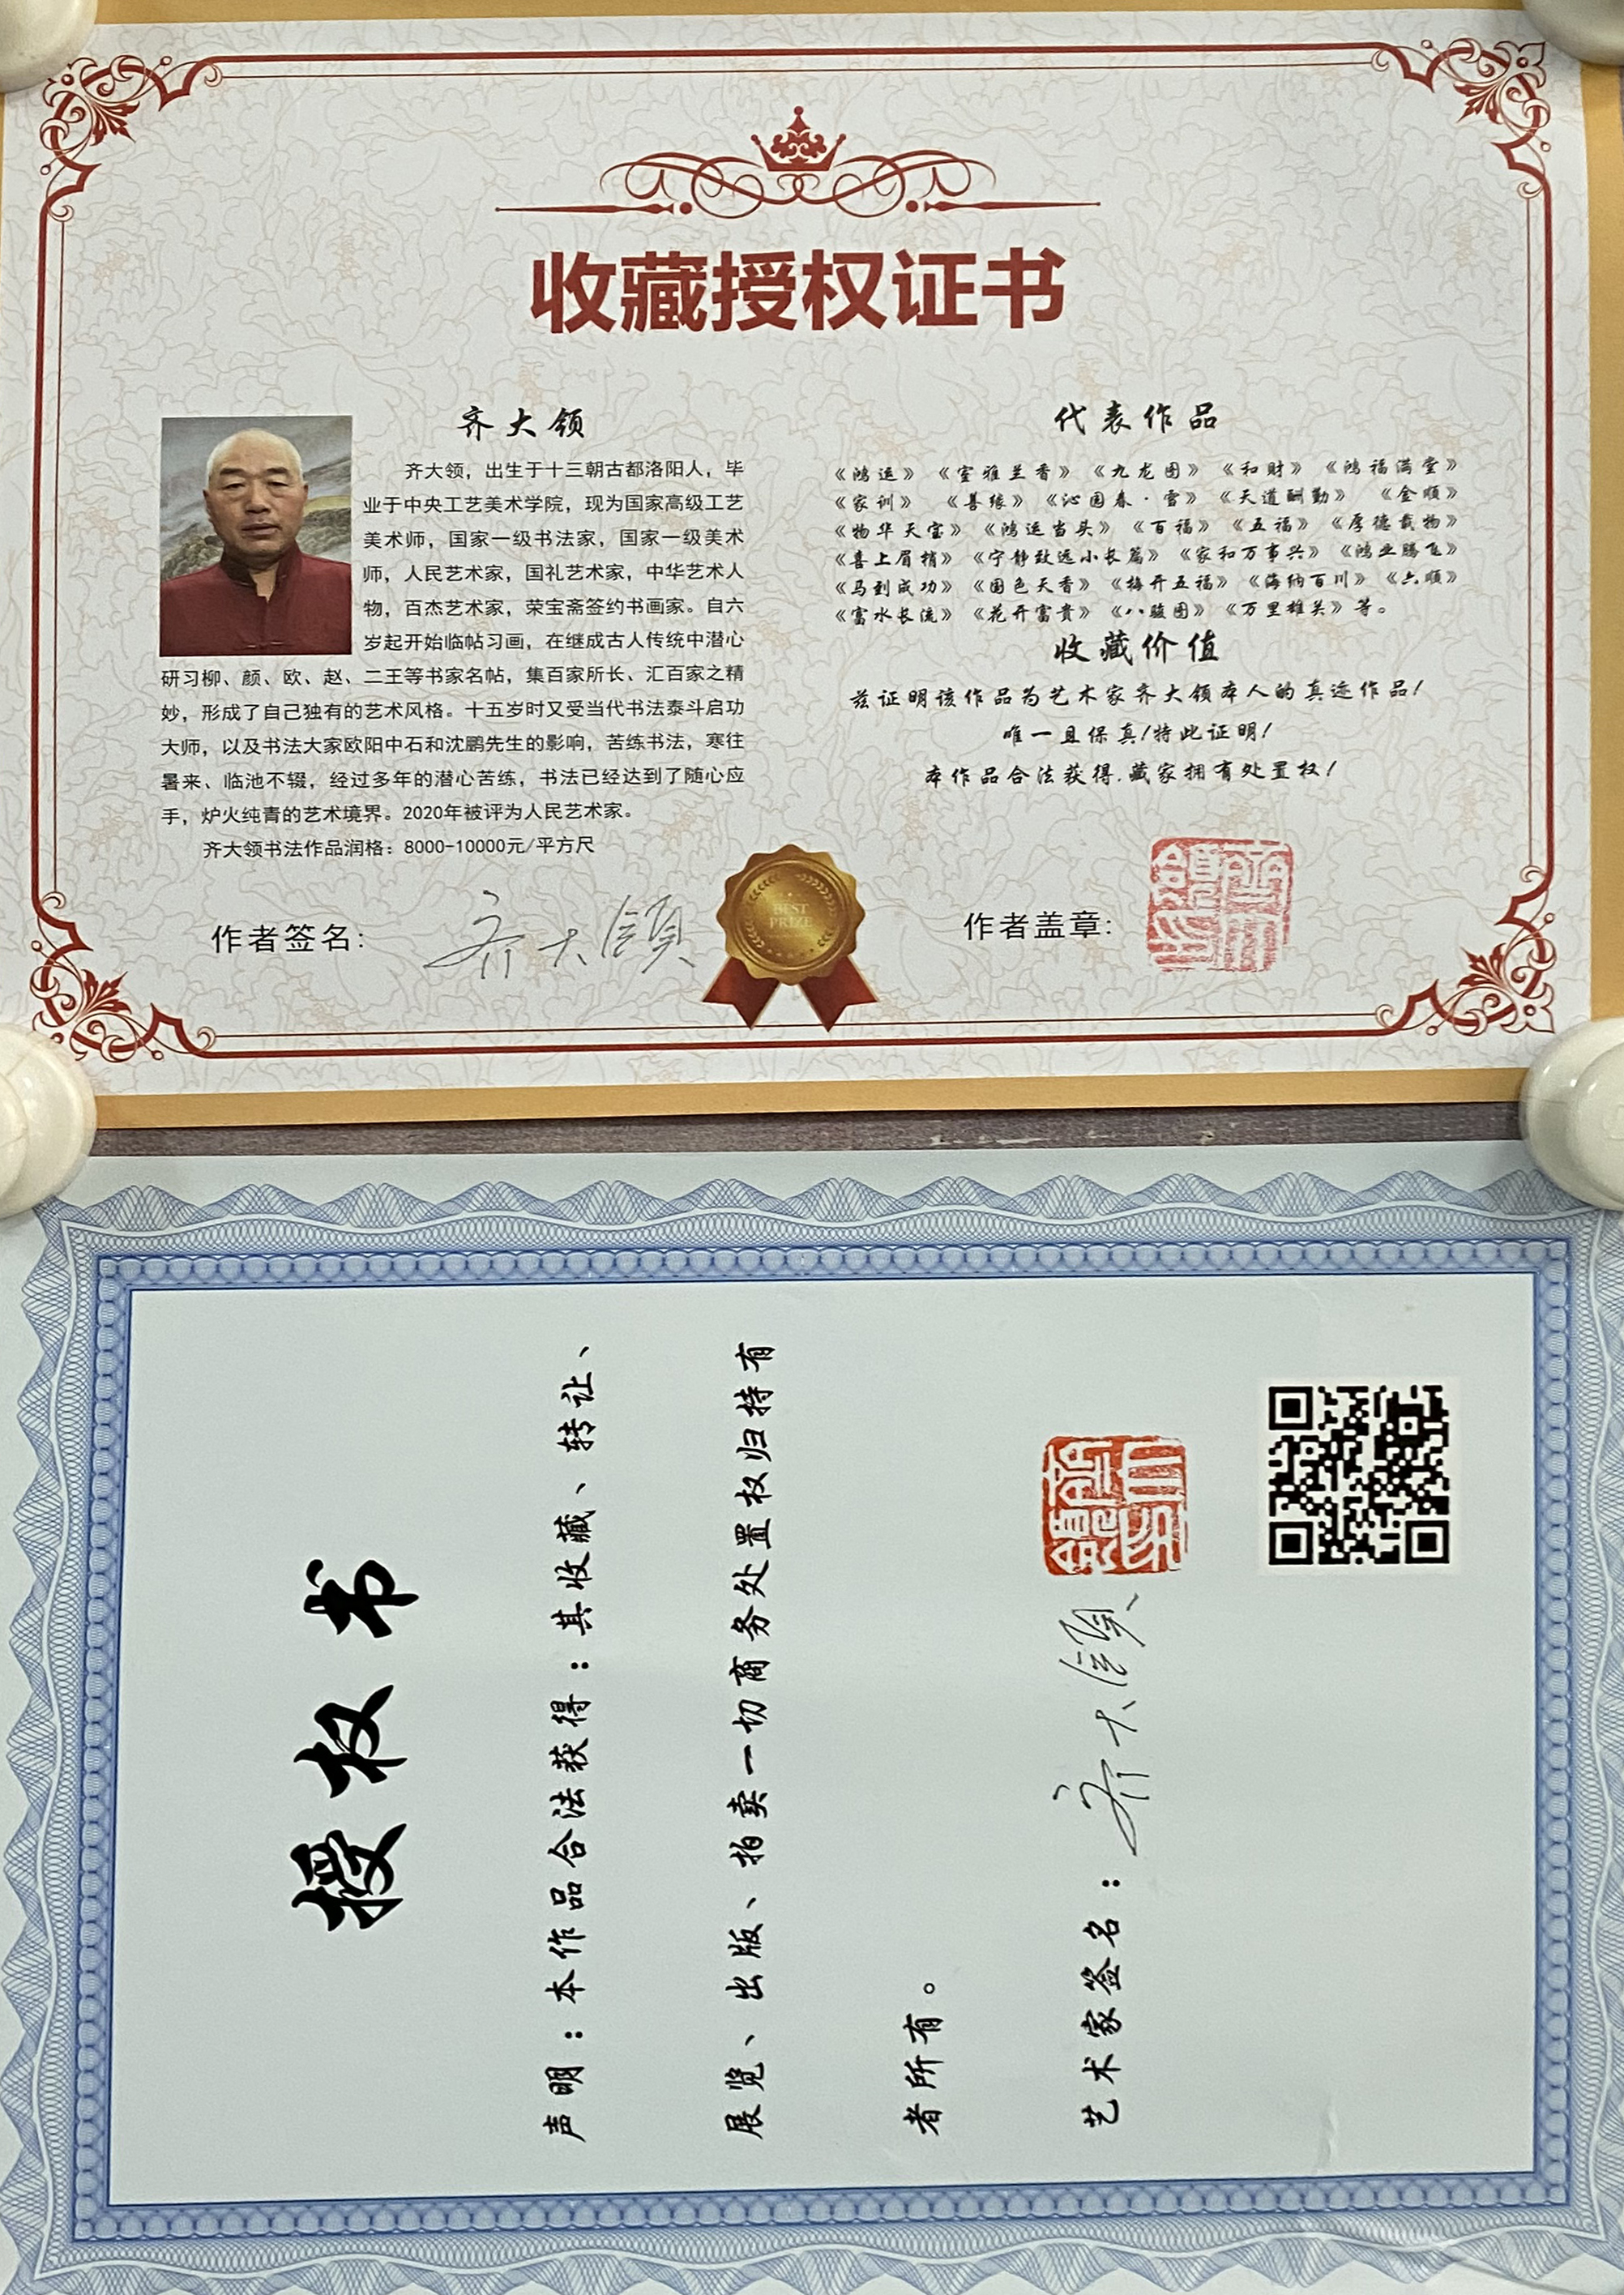 收藏授权证书
齐大领
齐大领，出生于十三朝古都洛阳人，毕
业于中央工艺美术学院，现为国家高级工艺
美术师，国家一级书法家，国家一级美术
师，人民艺术家，国礼艺术家，中华艺术人
物，百杰艺术家，荣宝斋签约书画家。自六
岁起开始临帖习画，在继成古人传统中潜心
研习柳、颜、欧、赵、二王等书家名帖，集百家所长、汇百家之精
妙，形成了自己独有的艺术风格。十五岁时又受当代书法泰斗启功
大师，以及书法大家欧阳中石和沈鹏先生的影响，苦练书法，寒往
暑来、临池不辍，经过多年的潜心苦练，书法已经达到了随心应
手，炉火纯青的艺术境界。2020年被评为人民艺术家。
齐大领书法作品润格：8000-10000元/平方尺
作者签名：
齐大領
代表作品
《鸿运》《室雅兰香》《九龙图》《和财》《鸿福满堂》
《家训》《善缘》《沁园春·雪》《天道酬勤》《金顺》
《物华天宝》《鸿运当头》《百福》《五福》《厚德载物》
《喜上眉梢》《宁静致远小长篇》《家和万事兴》《鸿业腾飞》
《马到成功》《国色天香》《梅开五福》《海纳百川》《六顺》
《富水长流》《花开富贵》《八骏图》《万里雄关》等。
收藏价值
兹证明该作品为艺术家齐大领本人的真迹作品！
唯一且保真！特此证明！
本作品合法获得，藏家拥有处置权！
BEST
PRIZE
作者盖章：
齐大領印
授权书
声明：本作品合法获得：其收藏、转让、
展览、出版、拍卖一切商务处置权归持有
者所有。
艺术家签名：齐大領
齐大領印